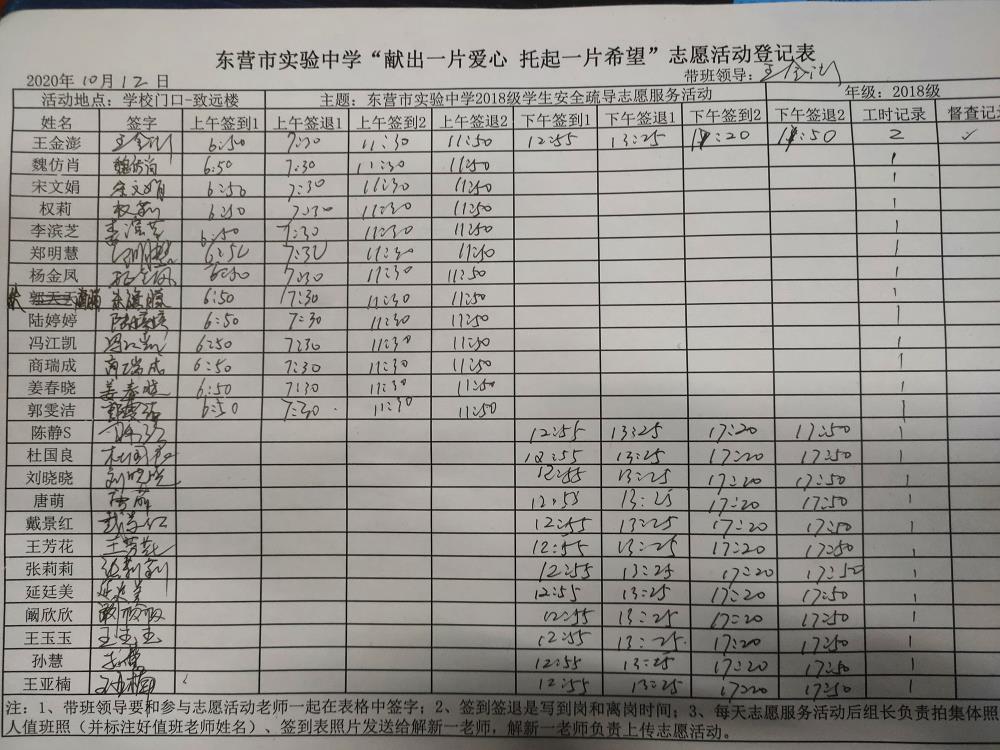 东营市实验中学“献出一片爱心 托起一片希望”志愿活动登记表
2020年10月12日 带班领导：王金澎
活动地点：学校门口-致远楼 主题：东营市实验中学2018级学生安全疏导志愿服务活动 年级：2018级
姓名 签字 上午签到1 上午签退1 上午签到2 上午签退2 下午签到1 下午签退1 下午签到2 下午签退2 工时记录 督查记录
王金澎 王金澎 6:50 7:30 11:30 11:50 12:55 13:25 17:20 17:50 2 ✓
魏仿肖 魏仿肖 6:50 7:30 11:30 11:50 1
宋文娟 宋文娟 6:50 7:30 11:30 11:50 1
权莉 权莉 6:50 7:30 11:30 11:50 1
李滨芝 李滨芝 6:50 7:30 11:30 11:50 1
郑明慧 郑明慧 6:50 7:30 11:30 11:50 1
杨金凤 杨金凤 6:50 7:30 11:30 11:50 1
6:50 7:30 11:30 11:50 1
陆婷婷 陆婷婷 6:50 7:30 11:30 11:50 1
冯江凯 冯江凯 6:50 7:30 11:30 11:50 1
商瑞成 商瑞成 6:50 7:30 11:30 11:50 1
姜春晓 姜春晓 6:50 7:30 11:30 11:50 1
郭雯洁 郭雯洁 6:50 7:30 11:30 11:50 1
陈静S 12:55 13:25 17:20 17:50 1
杜国良 杜国良 12:55 13:25 17:20 17:50 1
刘晓晓 刘晓晓 12:55 13:25 17:20 17:50 1
唐萌 唐萌 12:55 13:25 17:20 17:50 1
戴景红 戴景红 12:55 13:25 17:20 17:50 1
王芳花 王芳花 12:55 13:25 17:20 17:50 1
张莉莉 张莉莉 12:55 13:25 17:20 17:50 1
延廷美 延廷美 12:55 13:25 17:20 17:50 1
阚欣欣 阚欣欣 12:55 13:25 17:20 17:50 1
王玉玉 王玉玉 12:55 13:25 17:20 17:50 1
孙慧 孙慧 12:55 13:25 17:20 17:50 1
王亚楠 王亚楠 12:55 13:25 17:20 17:50 1
注：1、带班领导要和参与志愿活动老师一起在表格中签字；2、签到签退是写到岗和离岗时间；3、每天志愿服务活动后组长负责拍集体照
人值班照（并标注好值班老师姓名）、签到表照片发送给解新一老师，解新一老师负责上传志愿活动。